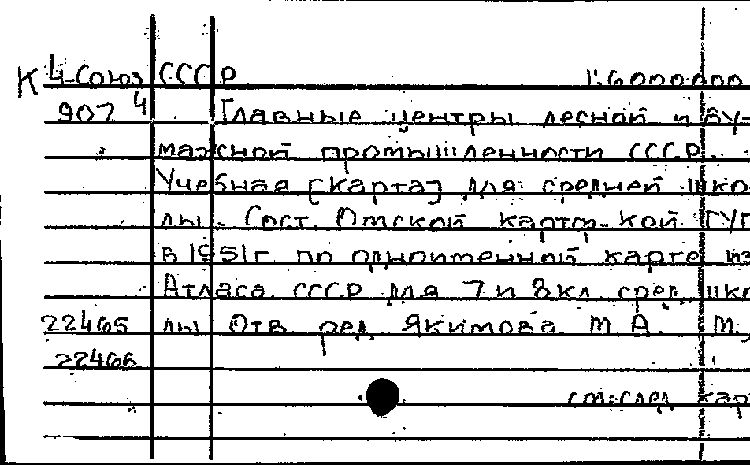 К 4-Союз СССР 1:6000000
907 4 Главные центры лесной и бу-
мажной промышленности СССР.
Учебная [карта] для средней шко-
лы. Сост. Омской картогр. кой ГУГ
в 1951г. по одноименной карте из
Атласа СССР для 7 и 8 кл. сред. шко
22465 лы Отв. ред. Якимова М.А. М.,
22466
см. след. кар